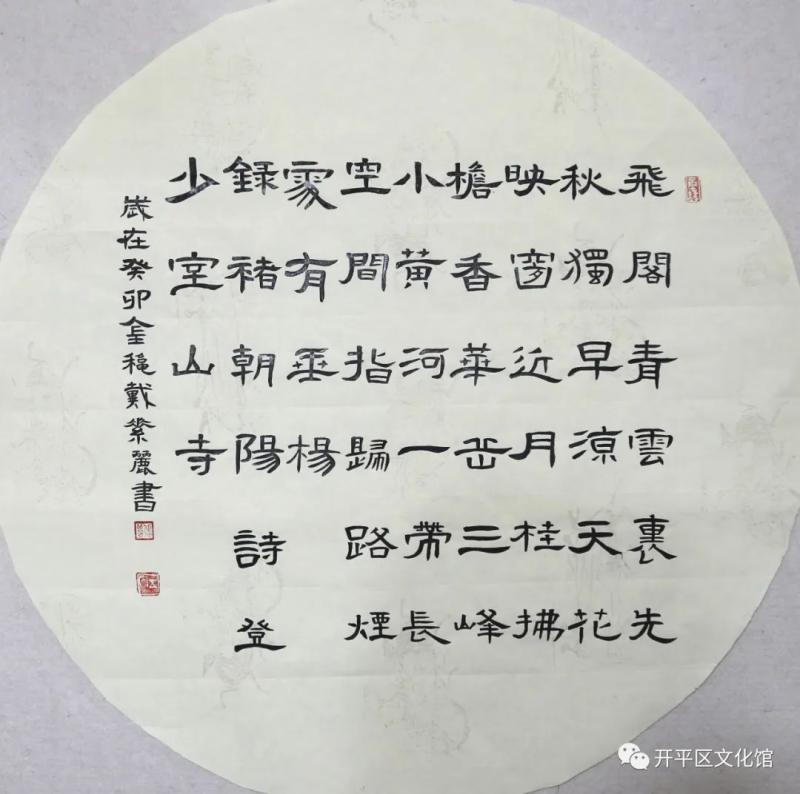 飛閣青雲裏先
秋獨早涼天花
映窗近月桂拂
檐香華岳三峰
小黃河一帶長
空間指歸路煙
處有垂楊
錄褚朝陽詩登
少室山寺
歲在癸卯金穐戴紫麗書
开平区文化馆